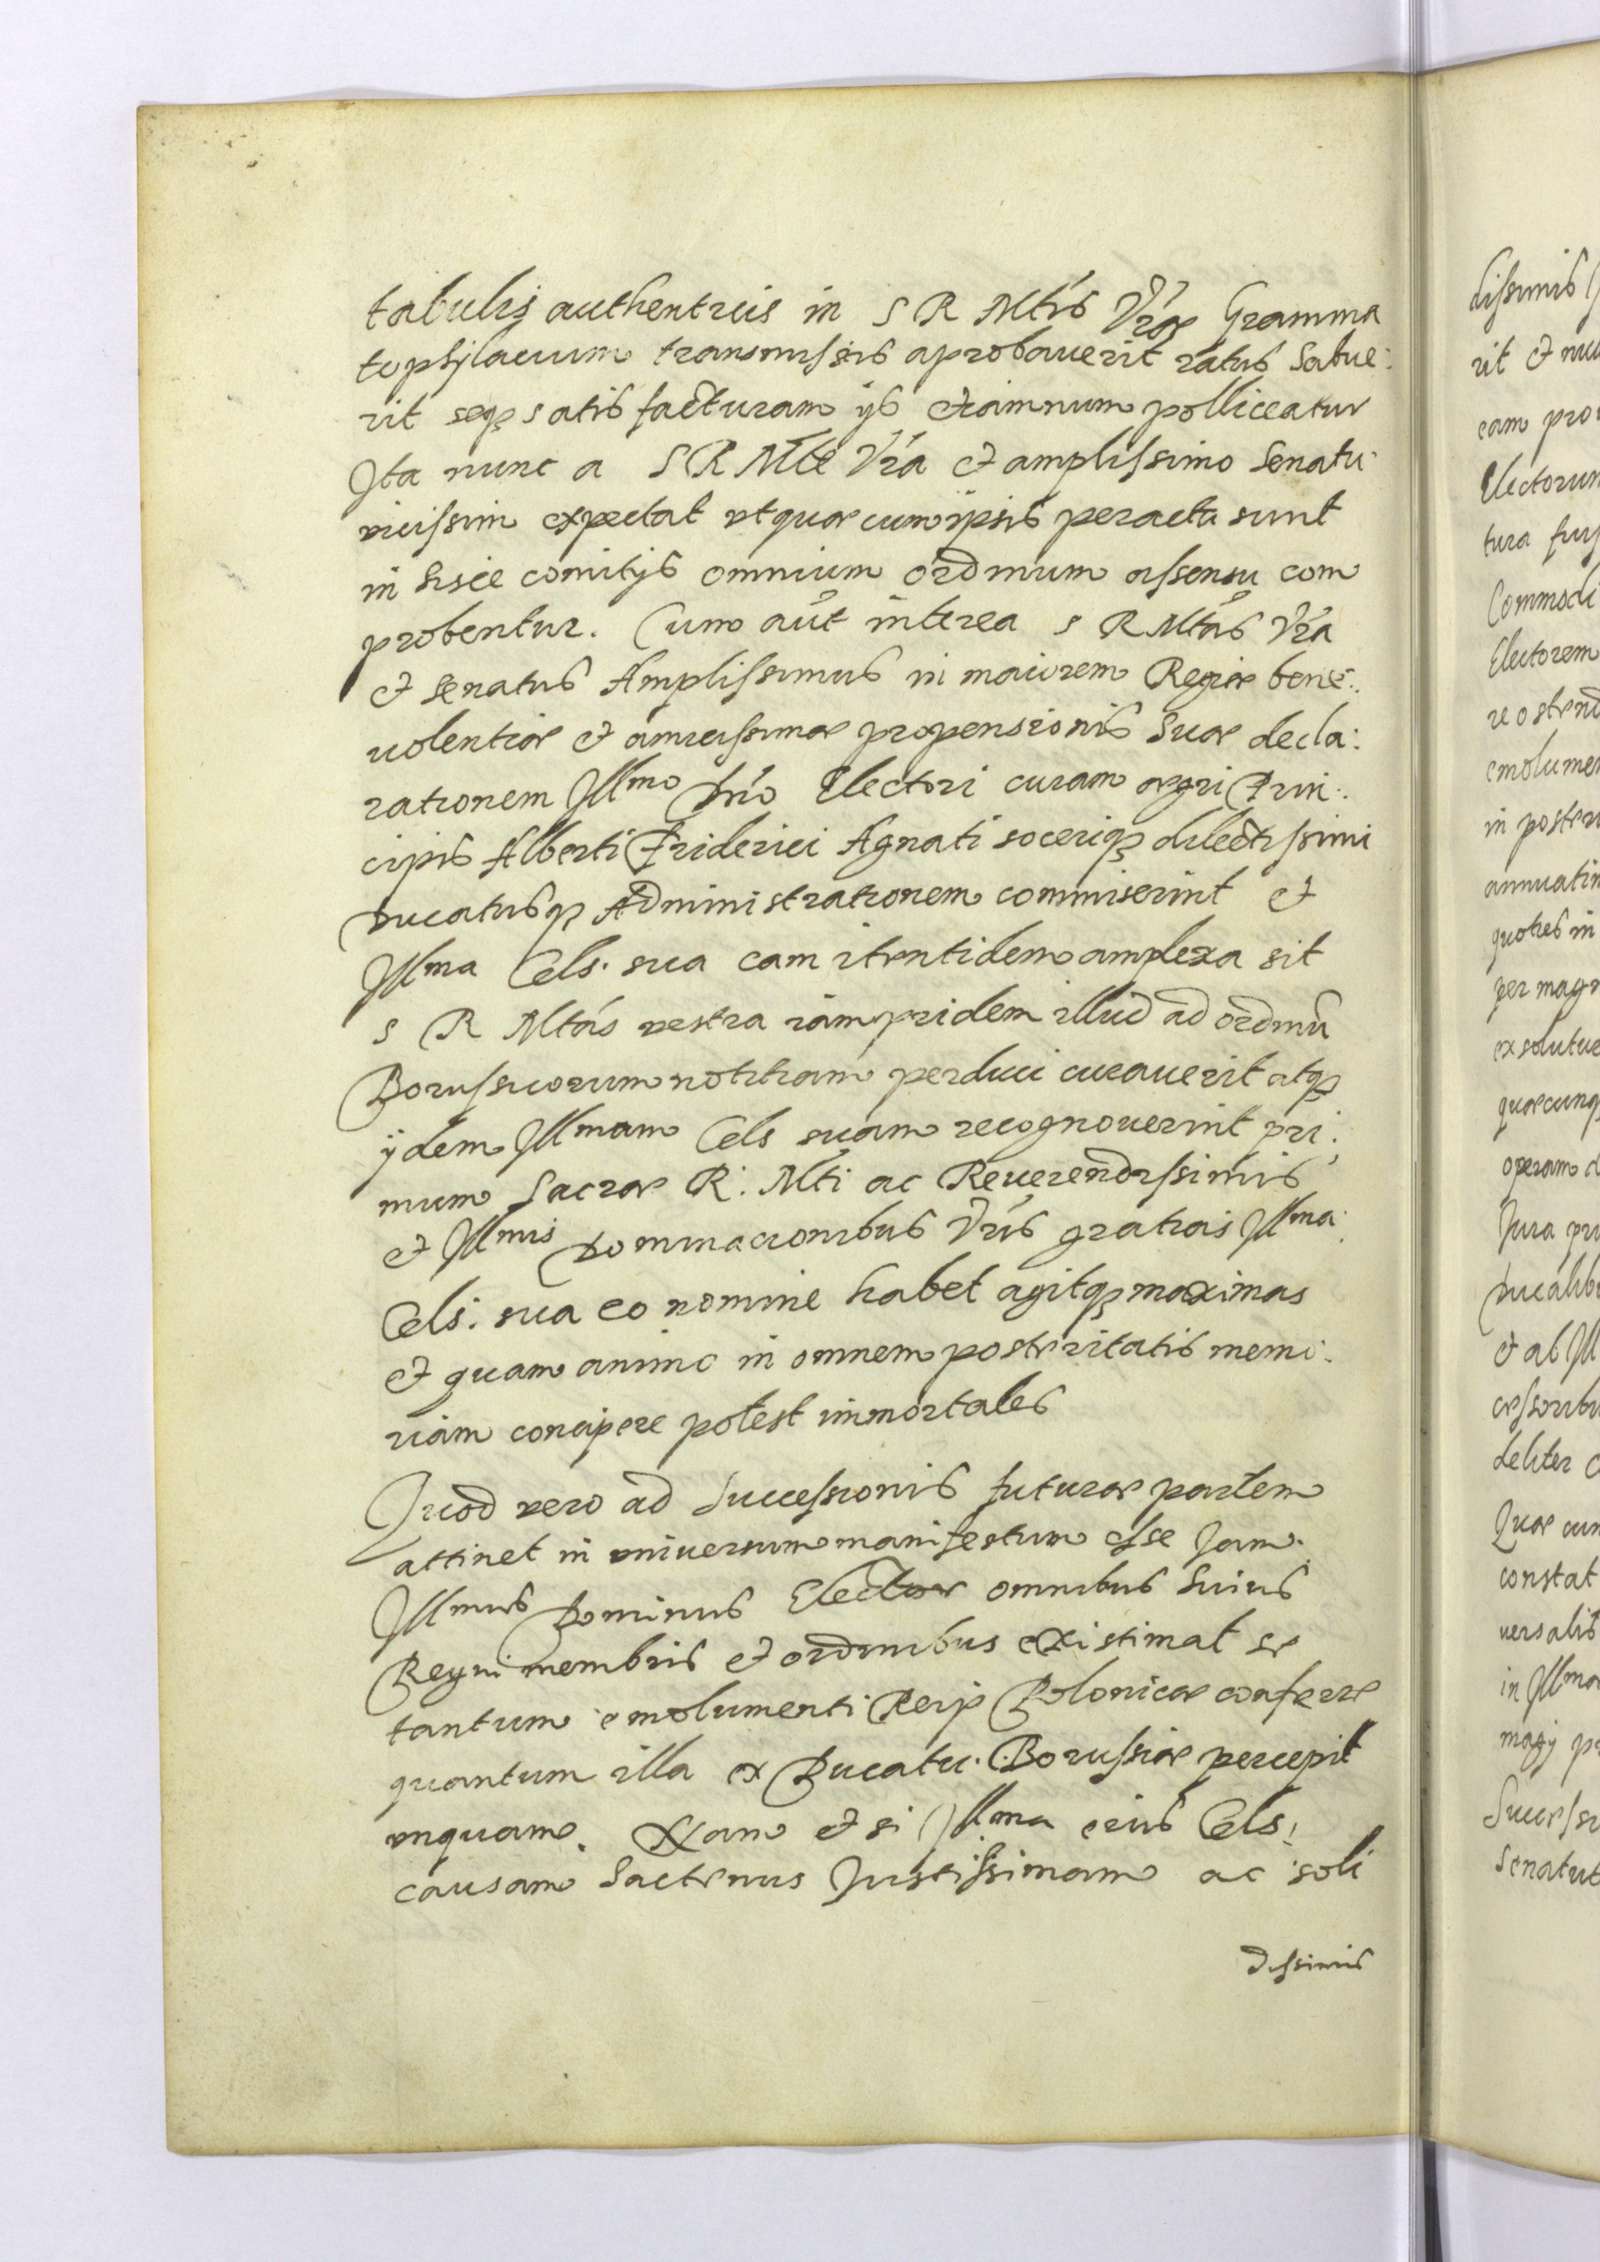 tabulis authenticis in S R Mtis Vrae Gramma
tophylacium transmissis aprobauerit ratus habue:
rit seqz satis facturam ijs etiamnum polliceatur
Ita nunc a S R Mte Vra et amplissimo Senatu
vicissim expectat vt quae cum ipsis peracta sunt
in hisce comitijs omnium ordinum assensu com
probentur. Cum aut interea S R Mtas Vra
et Senatus Amplissimus in maiorem Regiae bene:
uolentiae et amicissimae propensionis suae decla:
rationem Illmo Dno Electori curam aegri Prin:
cipis Alberti Friderici Agnati soceriqz dilectissimi
Ducatusqz Administrationem commiserint et
Illma Cels. sua eam itentidem amplexa sit
S R Mtas vestra iampridem illud ad ordinu
Borussicorum notitiam perduci curauerit atqz
ijdem Illmam Cels suam recognouerint pri:
mum Sacrae R. Mti ac Reuerendissimis
et Illmis Dominacionibus Vris gratias Illma
Cels: sua eo nomine habet agitqz maximas
et quam animo in omnem posteritatis memo:
riam concipere potest immortales
Quod vero ad Successionis futurae partem
attinet in vniuersum manifestum esse Iam
Illmus Dominus Elector omnibus huius
Regni membris et ordinibus existimat se
tantum emolumenti Reip Polonicae conferre
quantum illa ex Ducatu Borussiae percepit
vnquam. Nam et si Illma eius Cels:
causam hactenus Iustissimam ac soli
dissimis
dissimis
rit et nu
eam pro
Electorum
tura fui
Commodi
Electorem
re ostend
emolumen
in poster
annuatim
quoties in
per magn
exsolutue
quaecunq
operam d
Iura pri
Ducalibu
et ab Ill
cessoribu
deliter c
Quae cum
constat
uersalis
in Illma
magi p
Successi
Senatut